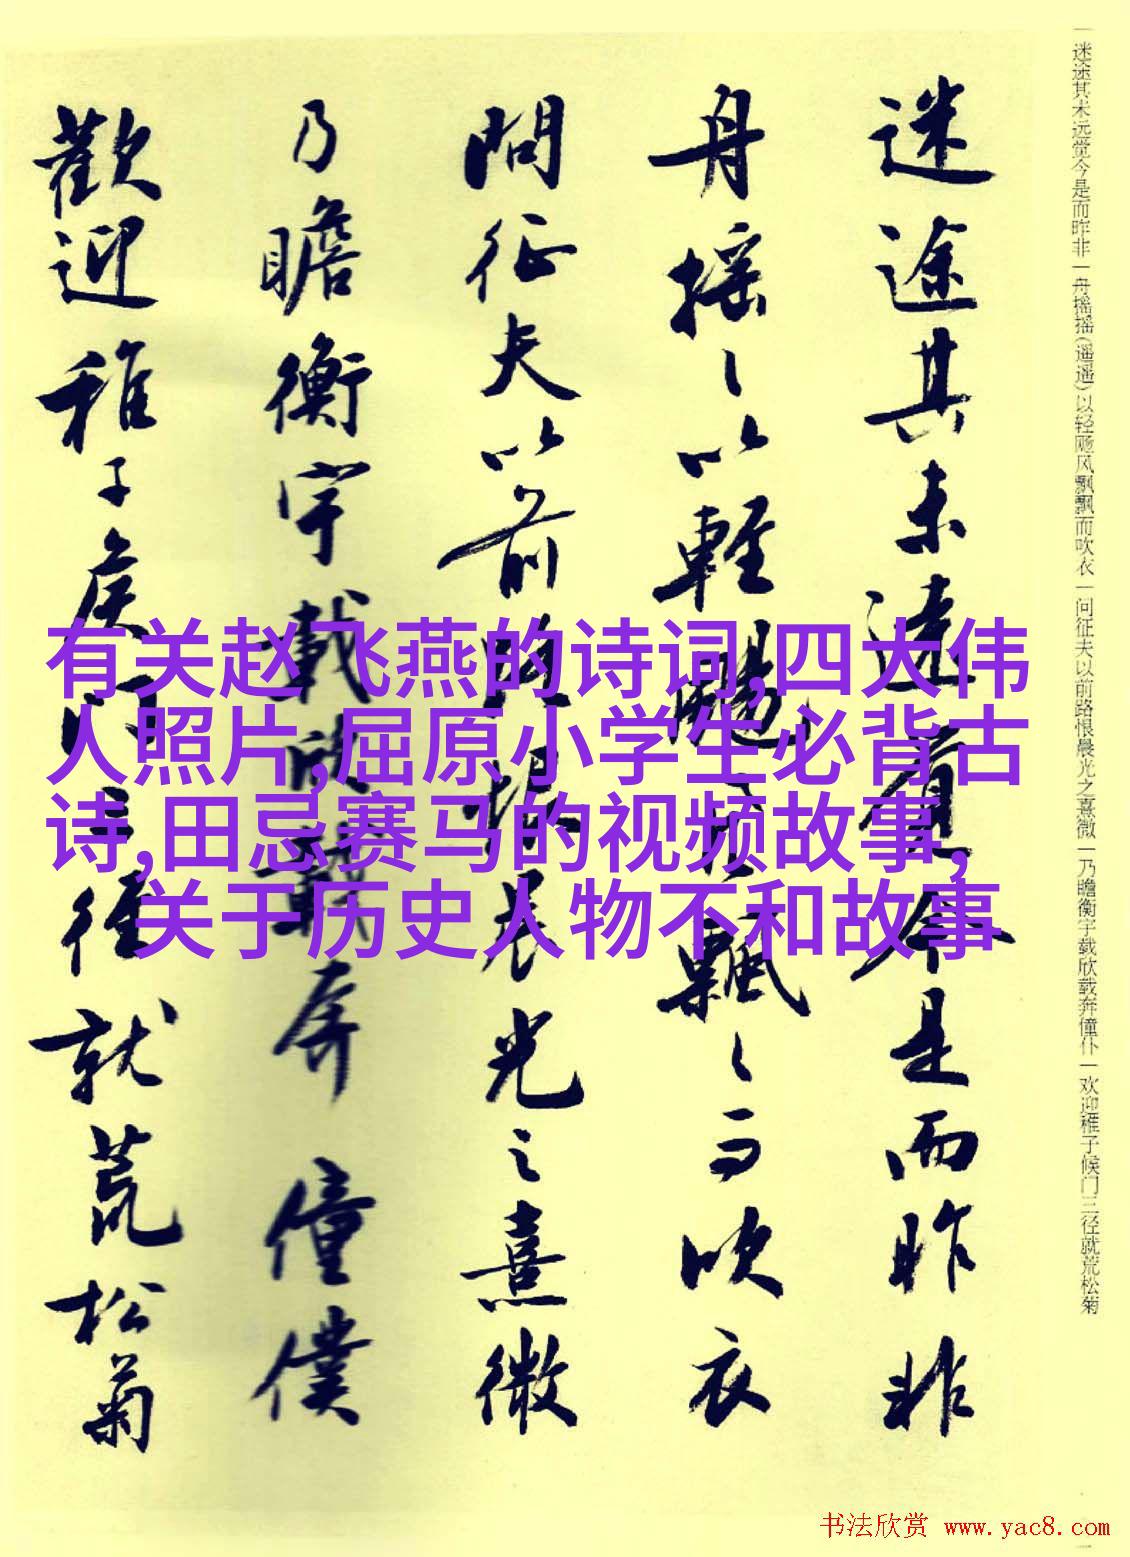 迷途其未远觉今是而昨非
舟摇〻以轻飏风飘〻而吹衣
問征夫以前路恨晨光之熹微
乃瞻衡宇載欣載奔僮僕
歡迎稚子候門三徑就荒松菊
一迷途其未远觉今是而昨非一舟摇摇(遥遥)以轻飏风飘飘而吹衣一问征夫以前路恨晨光之熹微一乃瞻衡宇载欣载奔僮仆一欢迎稚子候门三径就荒松菊
有关赵飞燕的诗词,四大伟
人照片,屈原小学生必背古
诗,田忌赛马的视频故事,
关于历史人物不和故事
书法欣赏 www.yac8.com